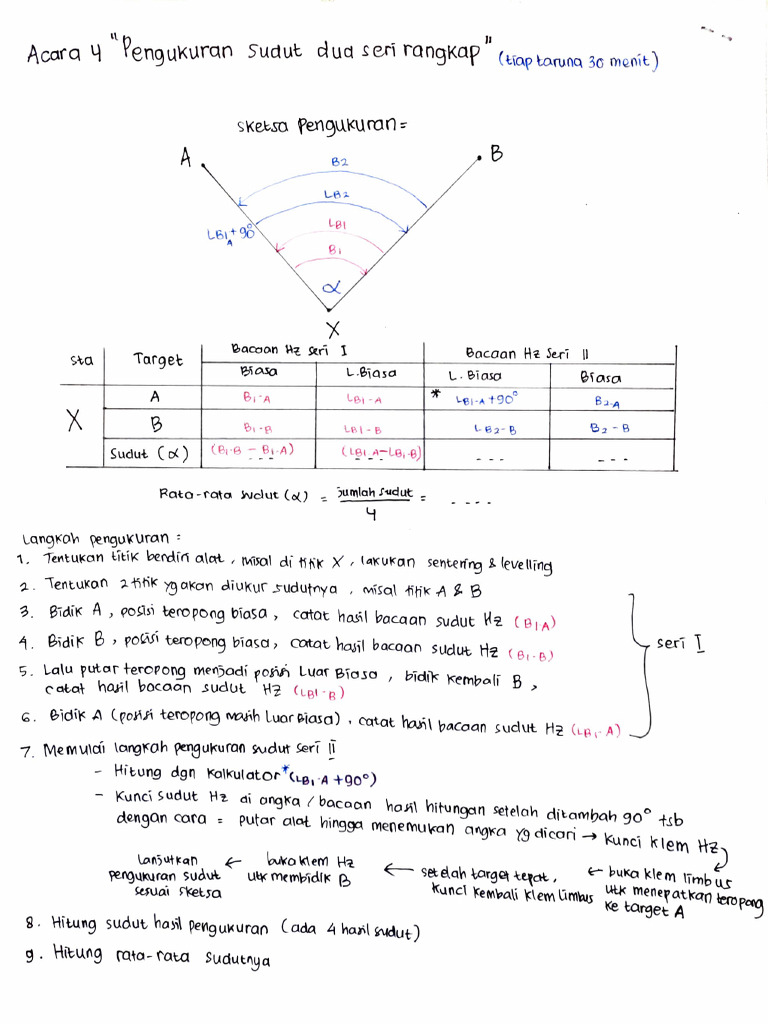 Acara 4 "Pengukuran sudut dua seri rangkap" (tiap taruna 30 menit)
Sketsa Pengukuran =
A
B
B2
LB2
LB1
B1
LB1A + 90°
α
X
Sta
Target
Bacaan Hz Seri I
Bacaan Hz Seri II
Biasa
L.Biasa
L. Biasa
Biasa
X
A
B1-A
LB1-A
* LB1-A+90°
B2-A
B
B1-B
LB1-B
LB2-B
B2-B
Sudut (α)
(B1-B - B1-A)
(LB1-A-LB1-B)
---
---
Rata-rata sudut (α) = jumlah sudut = ....
4
Langkah pengukuran :
1. Tentukan titik berdiri alat, misal di titik X, lakukan sentering & levelling
2. Tentukan 2 titik yg akan diukur sudutnya, misal titik A & B
3. Bidik A, posisi teropong biasa, catat hasil bacaan sudut Hz (B1A)
4. Bidik B, posisi teropong biasa, catat hasil bacaan sudut Hz (B1-B)
5. Lalu putar teropong menjadi posisi Luar Biasa, bidik kembali B,
catat hasil bacaan sudut Hz (LB1-B)
6. Bidik A (posisi teropong masih Luar Biasa), catat hasil bacaan sudut Hz (LB1-A)
seri I
7. Memulai langkah pengukuran sudut seri II
- Hitung dgn kalkulator *(LB1-A +90°)
- Kunci sudut Hz di angka / bacaan hasil hitungan setelah ditambah 90° tsb
dengan cara = putar alat hingga menemukan angka yg dicari → Kunci klem Hz
← buka klem limbus
utk menepatkan teropong
ke target A
← setelah target tepat,
kunci kembali klem limbus
← buka klem Hz
utk membidik B
lanjutkan
pengukuran sudut
sesuai sketsa
8. Hitung sudut hasil pengukuran (ada 4 hasil sudut)
9. Hitung rata-rata sudutnya